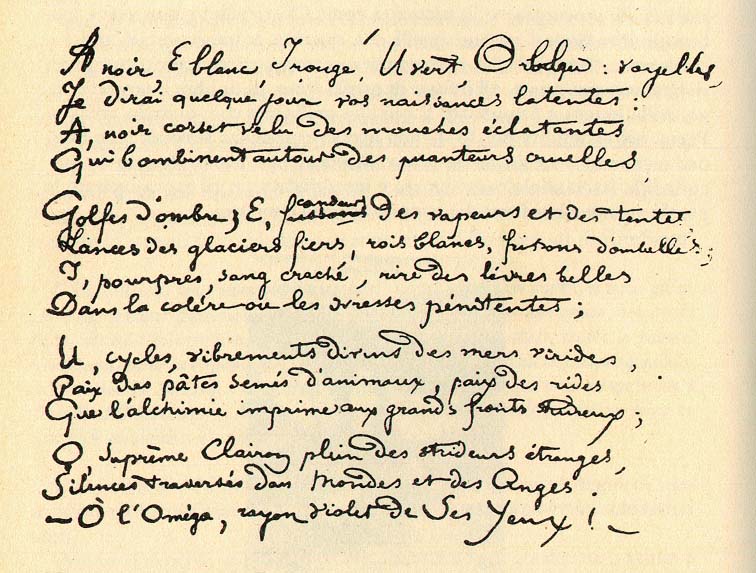 A noir, E blanc, I rouge, U vert, O bleu : voyelles,
Je dirai quelque jour vos naissances latentes :
A, noir corset velu des mouches éclatantes
Qui bombinent autour des puanteurs cruelles,
Golfes d'ombre ; E, frissons candeurs des vapeurs et des tentes
Lances des glaciers fiers, rois blancs, frissons d'ombelles ;
I, pourpres, sang craché, rire des lèvres belles
Dans la colère ou les ivresses pénitentes ;
U, cycles, vibrements divins des mers virides,
Paix des pâtis semés d'animaux, paix des rides
Que l'alchimie imprime aux grands fronts studieux ;
O, suprême Clairon plein des strideurs étranges,
Silences traversés des Mondes et des Anges :
— O l'Oméga, rayon violet de Ses Yeux ! —